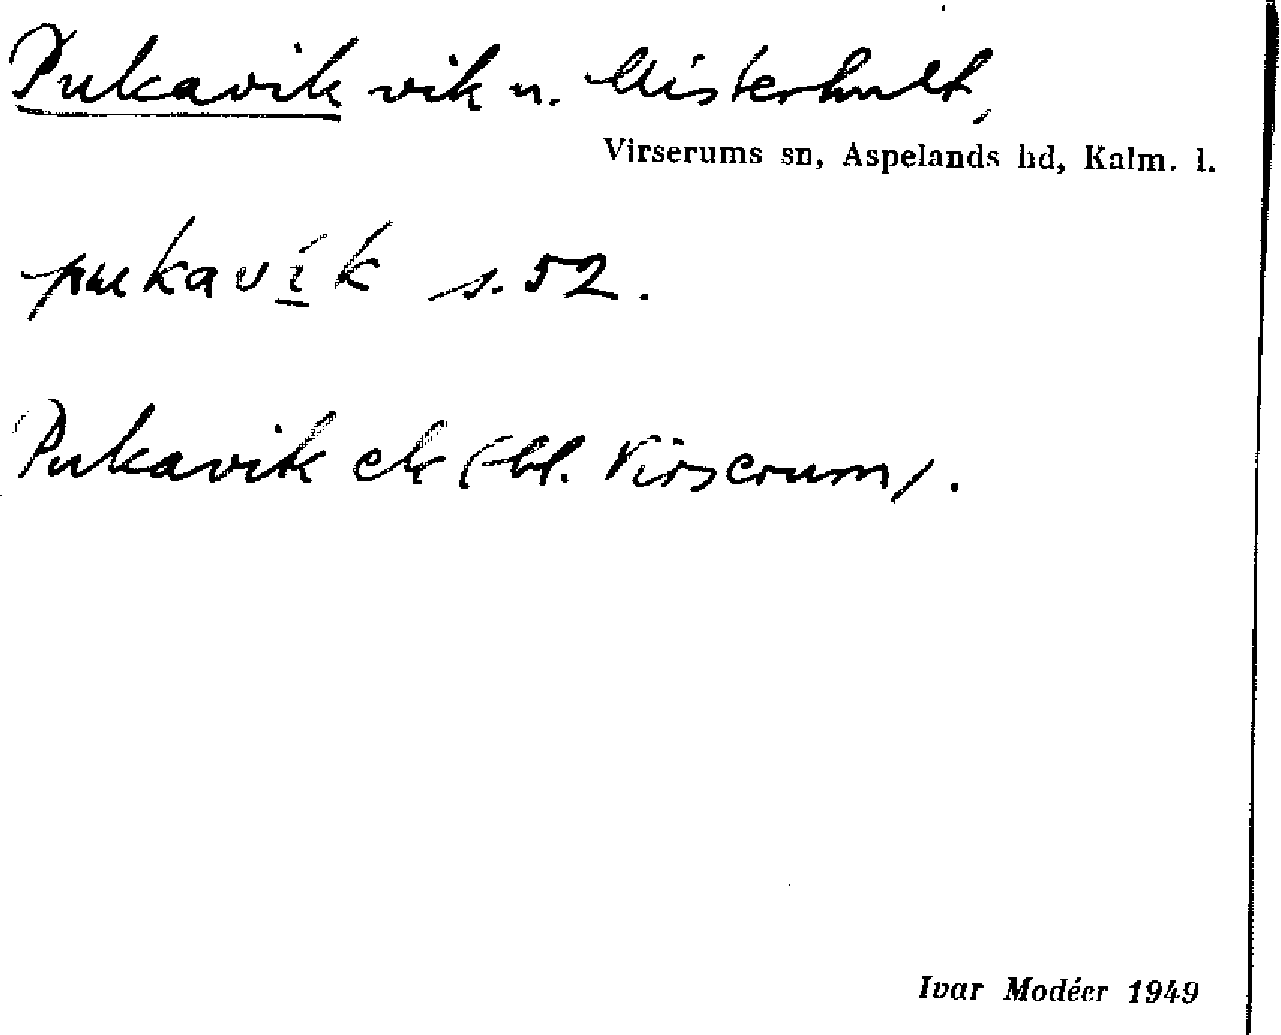 Pukavik vik u. Misterhult,
Virserums sn, Aspelands hd, Kalm. l.
pukavík s. 52.
Pukavik ek (bl. Virserum).
Ivar Modéer 1949